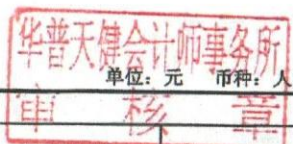 华普天健会计师事务所
单位：元 币种：人
审核章